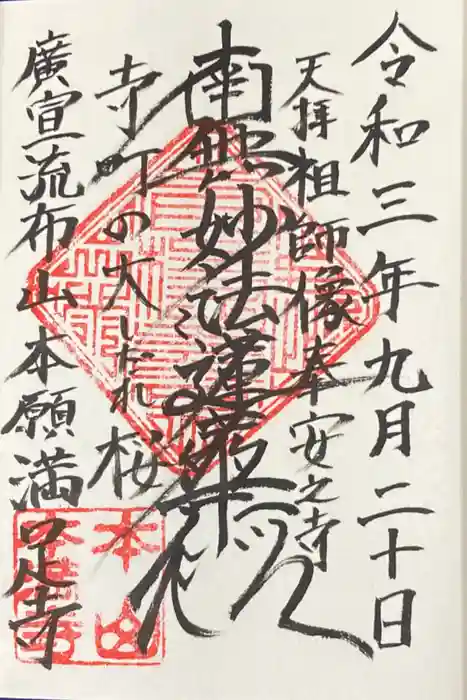 令和三年九月二十日
天拝祖師像奉安之寺
南無妙法蓮華経
寺町の大しだれ桜
廣宣流布山本願満足寺
本山